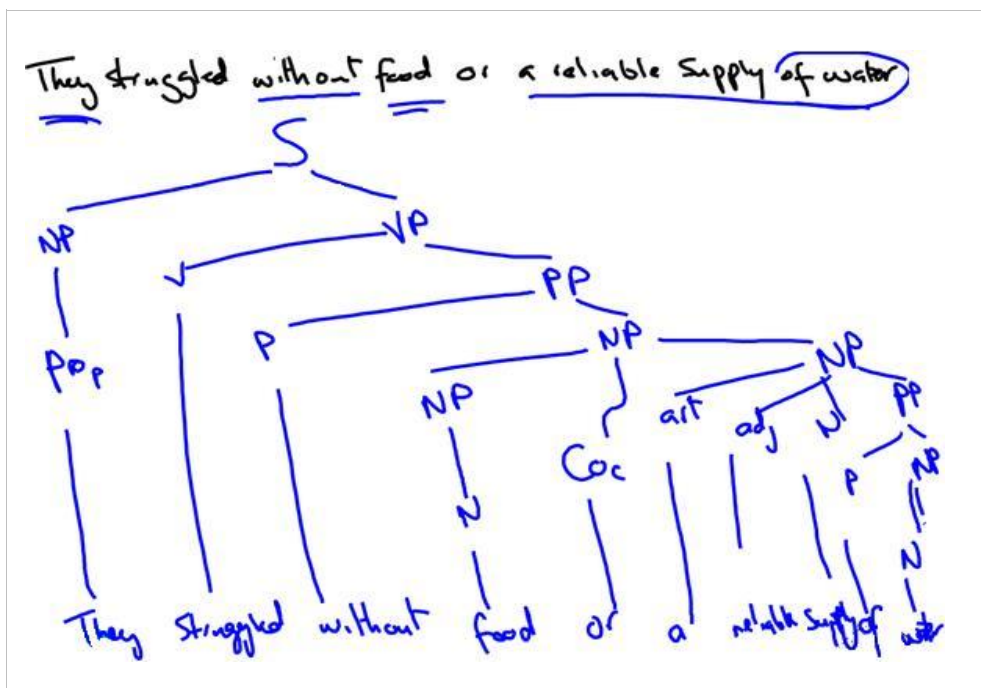 They struggled without food or a reliable supply of water
S
NP VP
V PP
P NP NP
Pro p
NP art adj N PP
Coc P NP
N N
They struggled without food or a reliable supply of water